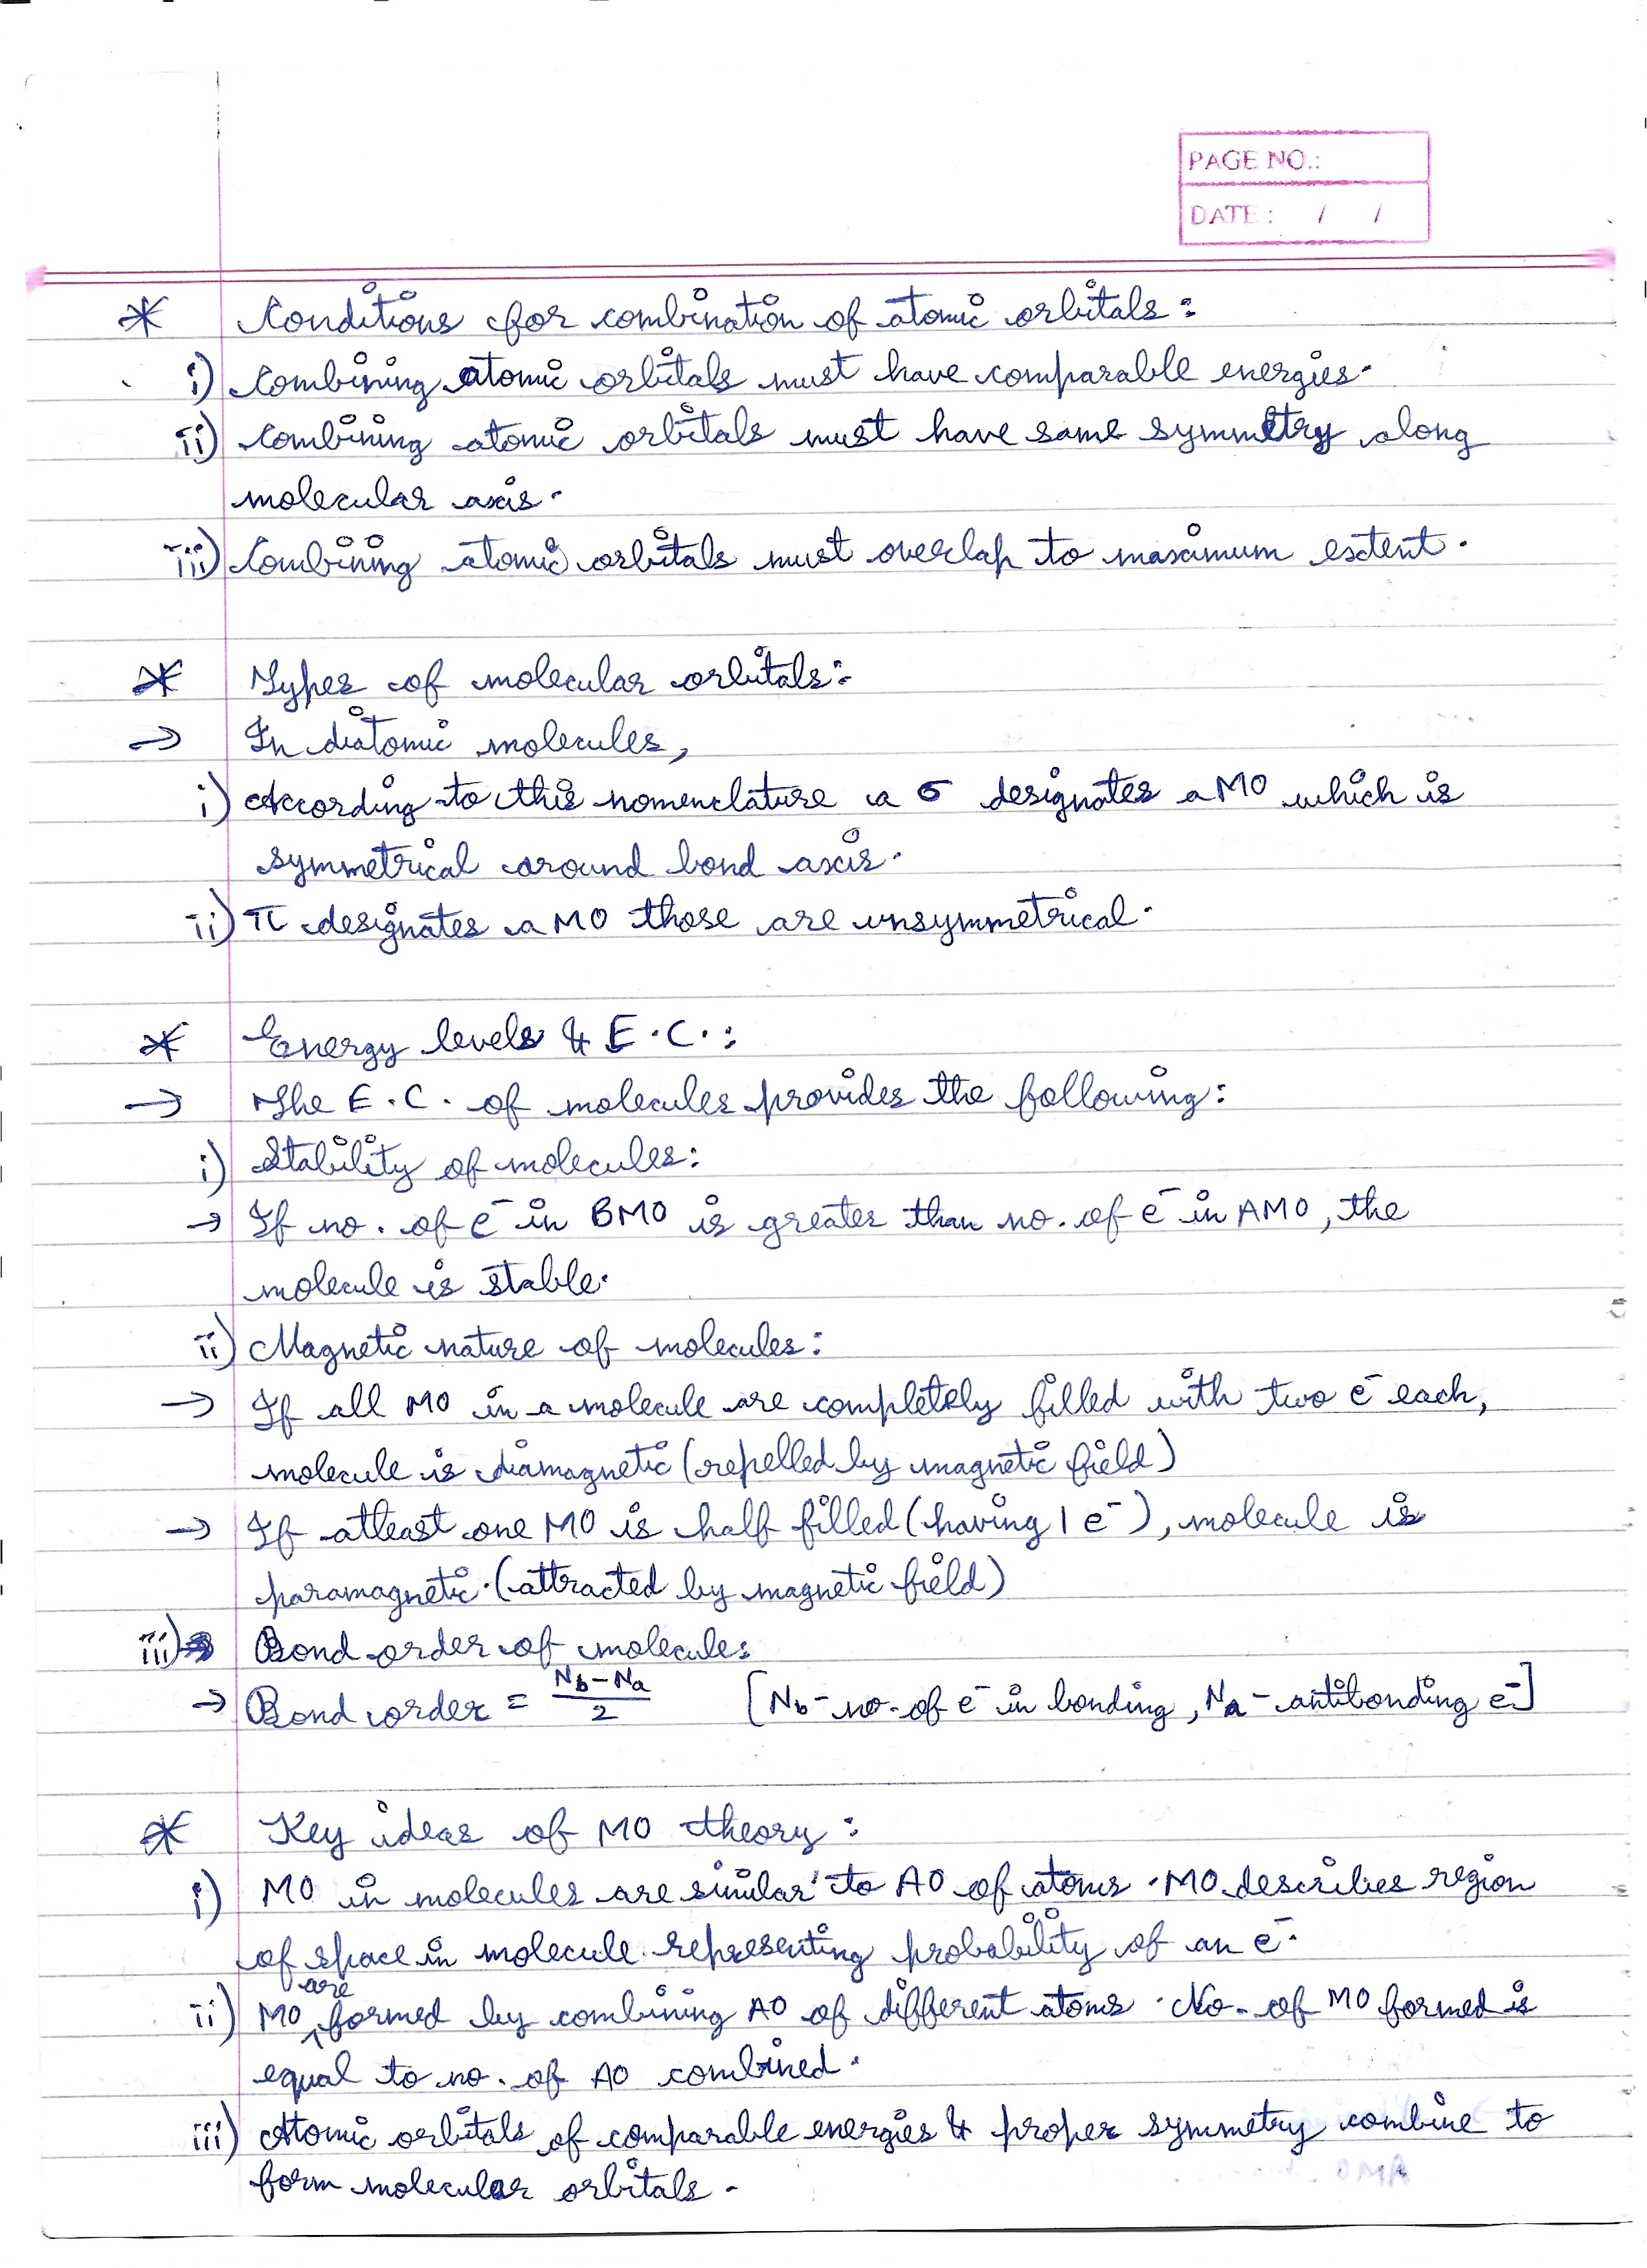 PAGE NO.:
DATE : / /
* Conditions for combination of atomic orbitals :
i) Combining atomic orbitals must have comparable energies.
ii) Combining atomic orbitals must have same symmetry along
molecular axis.
iii) Combining atomic orbitals must overlap to maximum extent.
* Types of molecular orbitals:
→ In diatomic molecules,
i) According to this nomenclature a σ designates a MO which is
symmetrical around bond axis.
ii) π designates a MO those are unsymmetrical.
* Energy levels & E.C. :
→ The E.C. of molecules provides the following :
i) Stability of molecules:
→ If no. of e⁻ in BMO is greater than no. of e⁻ in AMO, the
molecule is stable.
ii) Magnetic nature of molecules:
→ If all MO in a molecule are completely filled with two e⁻ each,
molecule is diamagnetic (repelled by magnetic field)
→ If atleast one MO is half filled (having 1 e⁻), molecule is
paramagnetic. (attracted by magnetic field)
iii) Bond order of molecule:
→ Bond order = (Nb - Na)/2 [Nb - no. of e⁻ in bonding, Na - antibonding e⁻]
* Key ideas of MO theory :
i) MO in molecules are similar to AO of atoms. MO describes region
of space in molecule representing probability of an e⁻.
ii) MO are formed by combining AO of different atoms. No. of MO formed is
equal to no. of AO combined.
iii) Atomic orbitals of comparable energies & proper symmetry combine to
form molecular orbitals.